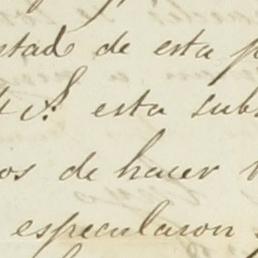 stado de esta p
esta subs
os de hacer
especularon